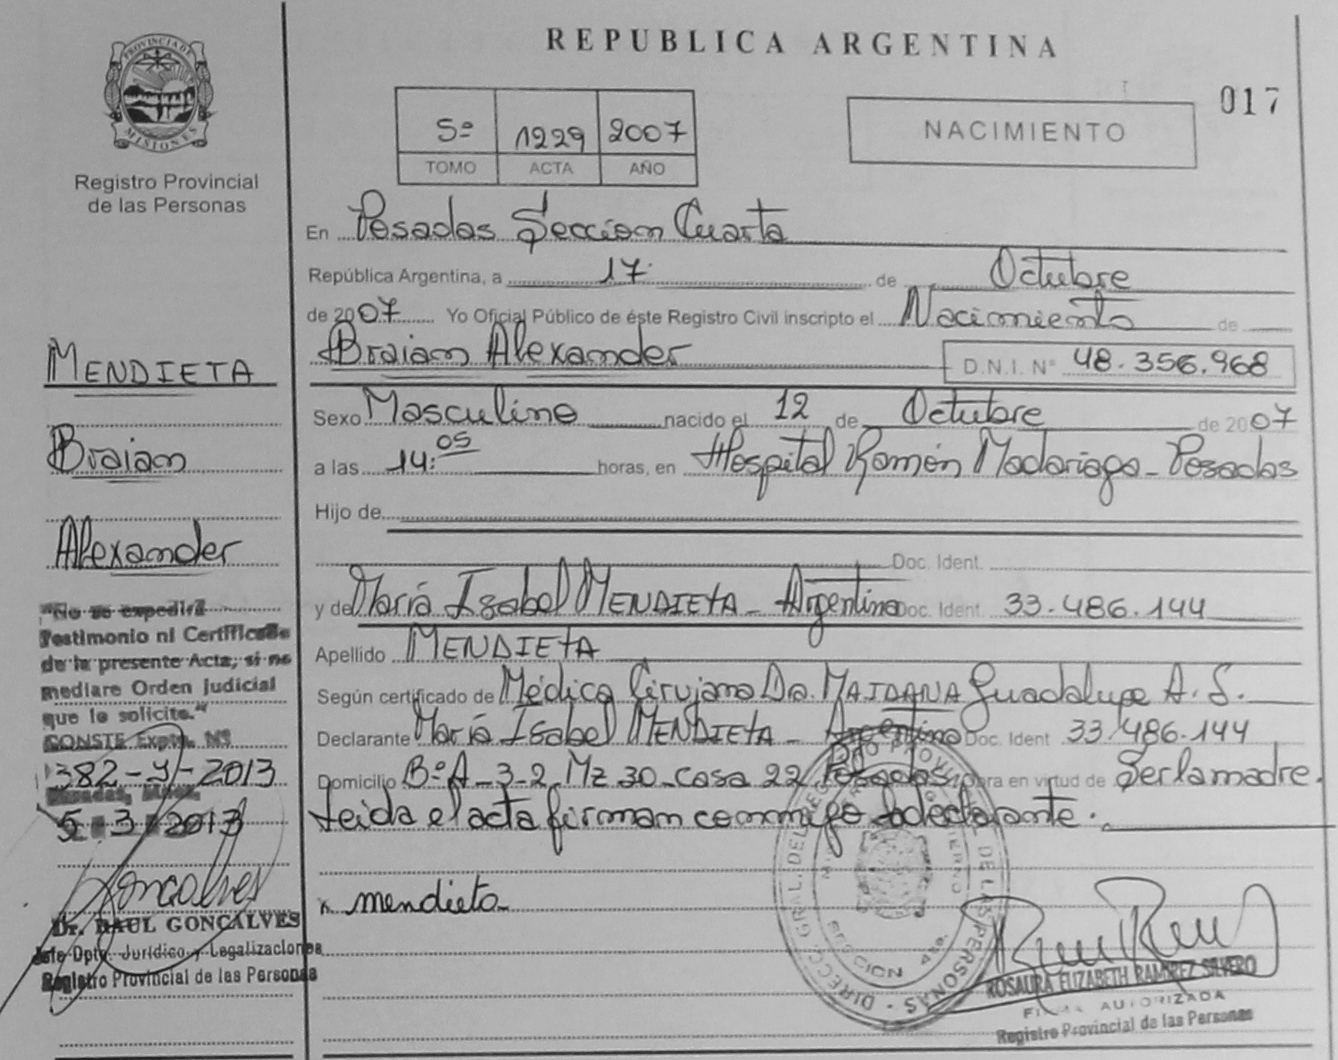 PROVINCIA DE
MISIONES
Registro Provincial
de las Personas
REPUBLICA ARGENTINA
017
5º 1229 2007
TOMO ACTA AÑO
NACIMIENTO
En Posadas Sección Cuarta
República Argentina, a 17 de Octubre
de 2007 Yo Oficial Público de éste Registro Civil inscripto el Nacimiento de
Braian Alexander D.N.I. Nº 48.356.968
Sexo Masculino nacido el 12 de Octubre de 2007
a las 14:05 horas, en Hospital Ramón Madariaga - Posadas
Hijo de
Doc. Ident.
y de María Isabel MENDIETA - Argentina Doc. Ident. 33.486.144
Apellido MENDIETA
Según certificado de Médica Cirujana Dra. MAIDANA Guadalupe A. S.
Declarante María Isabel MENDIETA - Argentina Doc. Ident 33.486.144
Domicilio Bº A-3-2 Mz 30 - casa 22 Posadas obra en virtud de Ser la madre.
Leida el acta firman conmigo la declarante.
x mendieta
MENDIETA
Braian
Alexander
"No se expedirá
Testimonio ni Certificado
de la presente Acta, si no
mediare Orden Judicial
que lo solicite."
CONSTE Expte. Nº
1382-Y-2013
Posadas, Mnes.
5 3 2013
Goncalves
Dr. RAUL GONCALVES
Jefe Dpto. Jurídico y Legalizaciones
Registro Provincial de las Personas
DIRECC. GRAL. DEL REG. PROV. DE LAS PERSONAS
SECCION 4ta.
ROSAURA ELIZABETH RAMIREZ SILVERO
FIRMA AUTORIZADA
Registro Provincial de las Personas